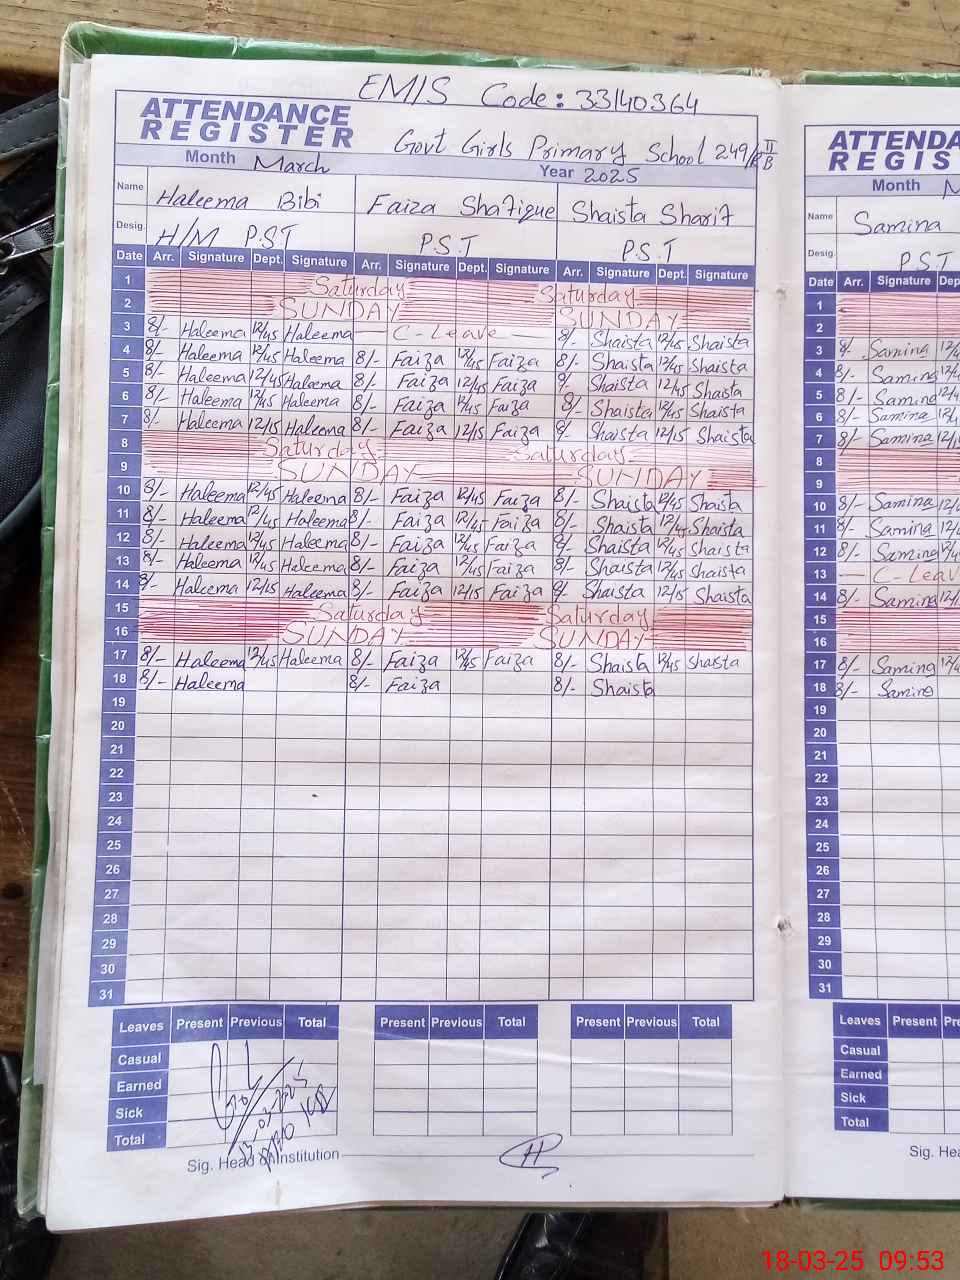 EMIS Code: 33140364
ATTENDANCE REGISTER
Govt Girls Primary School 249/
Month March Year 2025
Name Haleema Bibi Faiza Shafique Shaista Sharif
Desig. H/M P.S.T P.S.T P.S.T
Date Arr. Signature Dept. Signature Arr. Signature Dept. Signature Arr. Signature Dept. Signature
1 Saturday Saturday
2 SUNDAY SUNDAY
3 8/- Haleema 12/45 Haleema C-Leave 8/- Shaista 12/45 Shaista
4 8/- Haleema 12/45 Haleema 8/- Faiza 12/45 Faiza 8/- Shaista 12/45 Shaista
5 8/- Haleema 12/45 Haleema 8/- Faiza 12/45 Faiza 8/- Shaista 12/45 Shaista
6 8/- Haleema 12/45 Haleema 8/- Faiza 12/45 Faiza 8/- Shaista 12/45 Shaista
7 8/- Haleema 12/15 Haleema 8/- Faiza 12/15 Faiza 8/- Shaista 12/15 Shaista
8 Saturday Saturday
9 SUNDAY SUNDAY
10 8/- Haleema 12/45 Haleema 8/- Faiza 12/45 Faiza 8/- Shaista 12/45 Shaista
11 8/- Haleema 12/45 Haleema 8/- Faiza 12/45 Faiza 8/- Shaista 12/45 Shaista
12 8/- Haleema 12/45 Haleema 8/- Faiza 12/45 Faiza 8/- Shaista 12/45 Shaista
13 8/- Haleema 12/45 Haleema 8/- Faiza 12/45 Faiza 8/- Shaista 12/45 Shaista
14 8/- Haleema 12/15 Haleema 8/- Faiza 12/15 Faiza 8/- Shaista 12/15 Shaista
15 Saturday Saturday
16 SUNDAY SUNDAY
17 8/- Haleema 12/45 Haleema 8/- Faiza 12/45 Faiza 8/- Shaista 12/45 Shaista
18 8/- Haleema 8/- Faiza 8/- Shaista
19
20
21
22
23
24
25
26
27
28
29
30
31
Leaves Present Previous Total Present Previous Total Present Previous Total
Casual
Earned
Sick
Total
Sig. Head of Institution
ATTENDA
REGIS
Month
Name Samina
Desig. P.S.T
Date Arr. Signature Dep
1
2
3 8/- Samina
4 8/- Samina
5 8/- Samina
6 8/- Samina
7 8/- Samina
8
9
10 8/- Samina
11 8/- Samina
12 8/- Samina
13 C-Leav
14 8/- Samina
15
16
17 8/- Samina
18 8/- Samina
19
20
21
22
23
24
25
26
27
28
29
30
31
Leaves Present Pre
Casual
Earned
Sick
Total
Sig. Hea
18-03-25 09:53